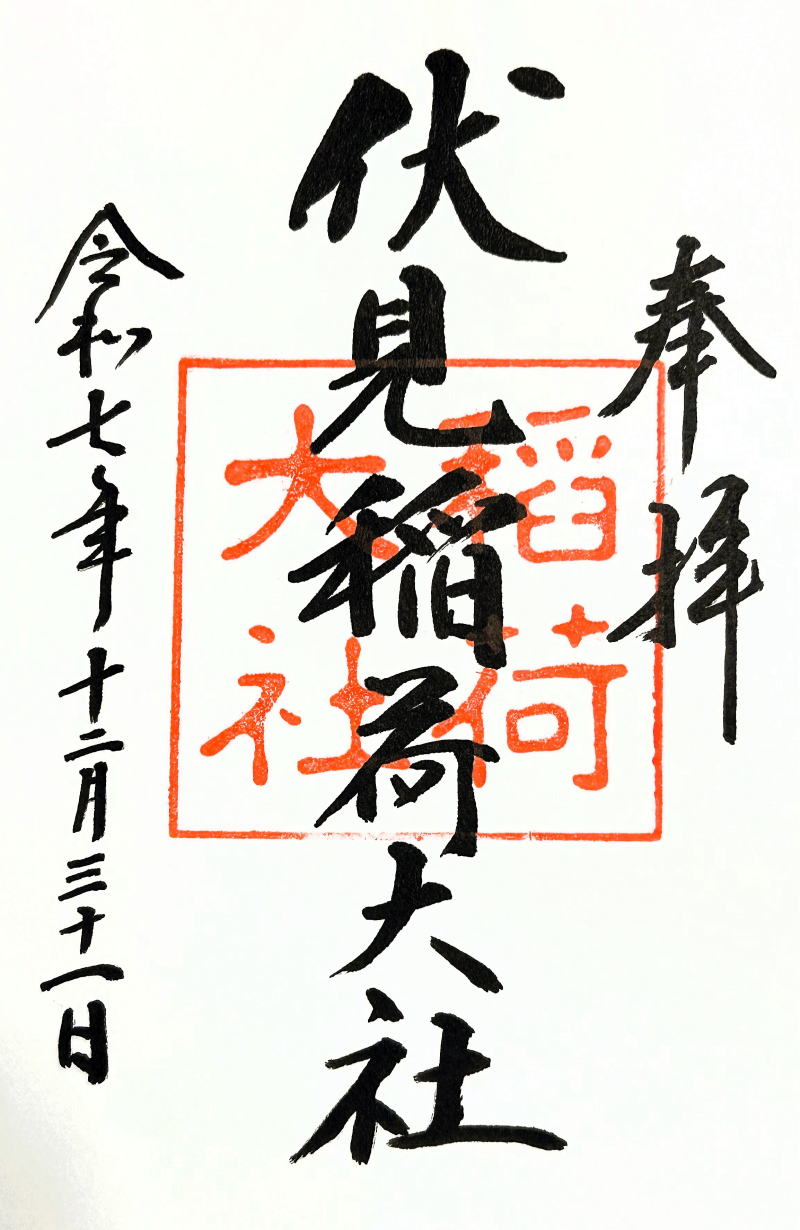 奉拝
伏見稲荷大社
稲荷
大社
令和七年十二月三十一日